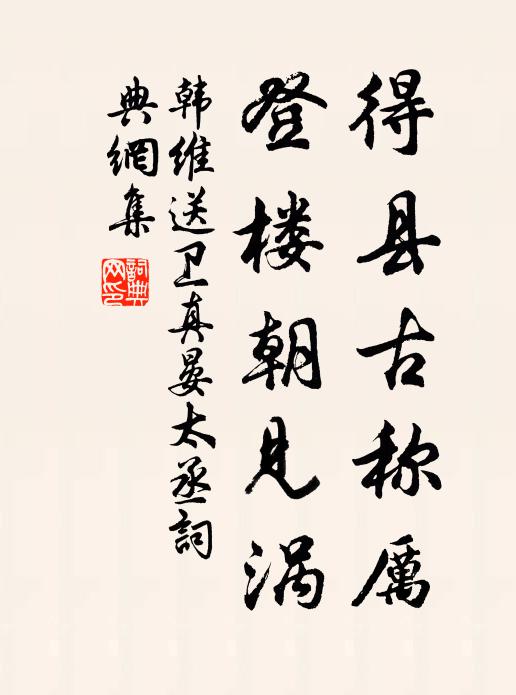 得县古称厉
登楼朝见涡
韩维送卫真晏太丞詞
典網集
詞典
网印